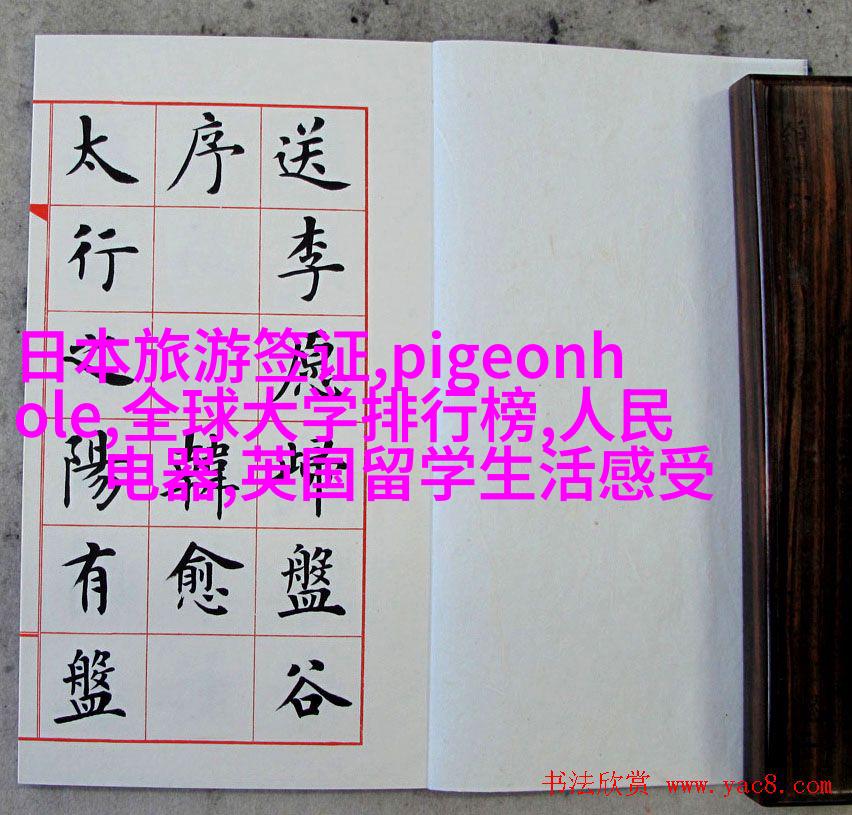 送李愿歸盤谷
序 韓愈
太行之陽有盤
日本旅游签证,pigeonh
ole,全球大学排行榜,人民
电器,英国留学生活感受
书法欣赏 www.yac8.com